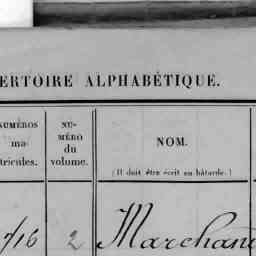 ERTOIRE ALPHABÉTIQUE.
NUMÉROS
ma-
tricules.
NU-
MÉRO
du
volume.
NOM.
(Il doit être écrit en bâtarde.)
716 2 Marchand